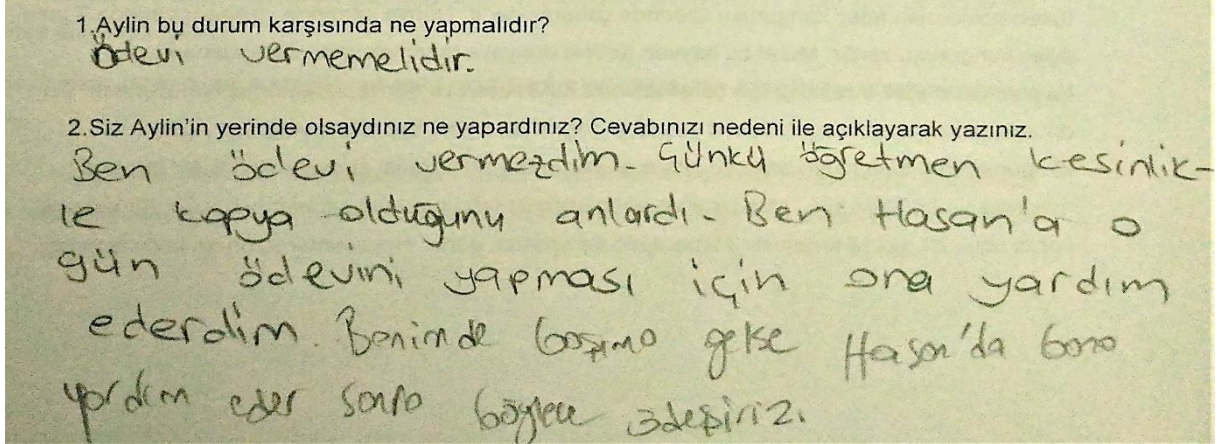 1.Aylin bu durum karşısında ne yapmalıdır?
Ödevi vermemelidir.
2.Siz Aylin'in yerinde olsaydınız ne yapardınız? Cevabınızı nedeni ile açıklayarak yazınız.
Ben ödevi vermezdim. Çünkü öğretmen kesinlik-
le kopya olduğunu anlardı. Ben Hasan'a o
gün ödevini yapması için ona yardım
ederdim. Benimde başıma gelse Hasan'da bana
yardım eder sonra böylece ödeşiriz.